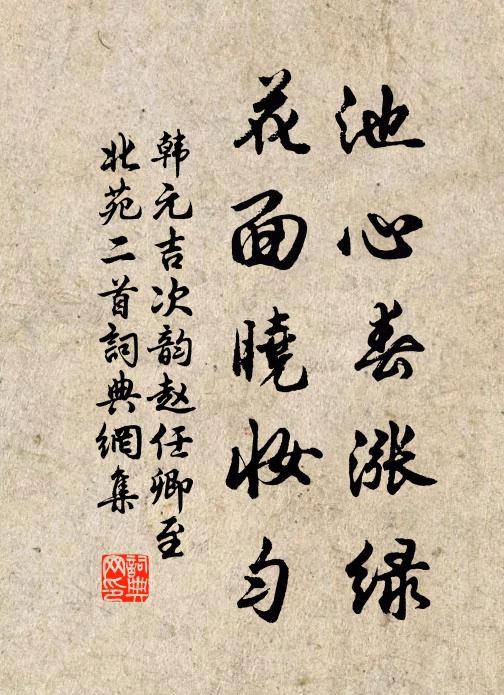 池心春涨绿
花面曉妆匀
韩元吉次韵赵任卿至
北苑二首詞典網集
詞典
网印